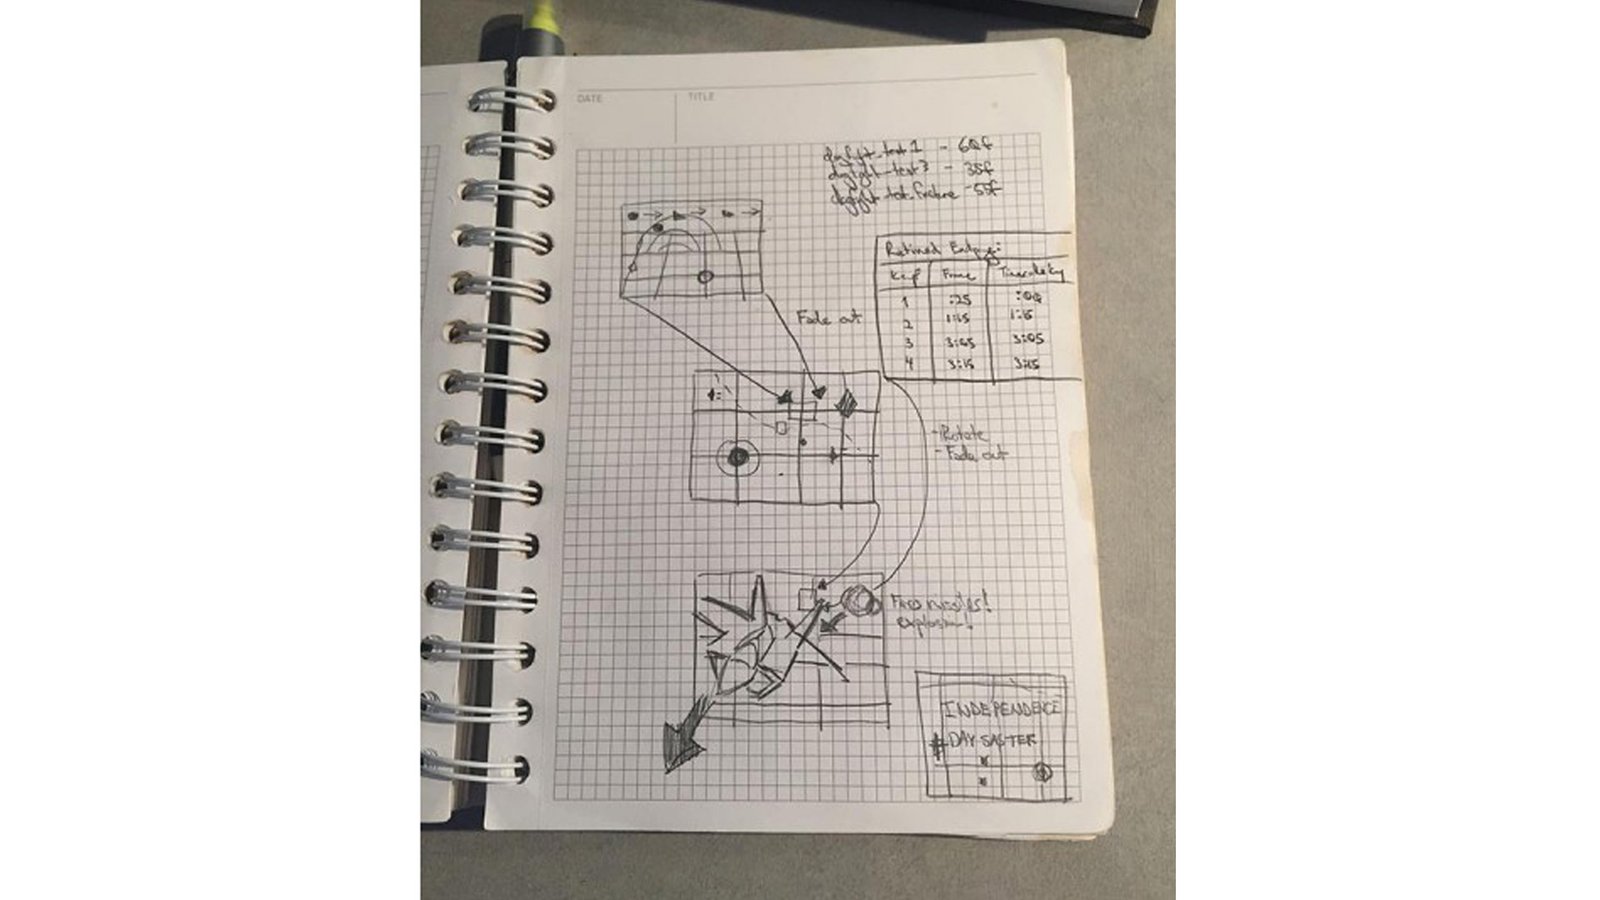 DATE
TITLE
dogfyt_test1 - 60f
dogfyt_test3 - 35f
dogfyt_test_fracture - 55f
Retimed Endings:
Key Frame
1 :25 :00
2 1:15 1:15
3 3:05 3:05
4 3:15 3:15
Fade out
- Rotate
- Fade out
Fires missiles!
explosion!
INDEPENDENCE
#DAYSASTER